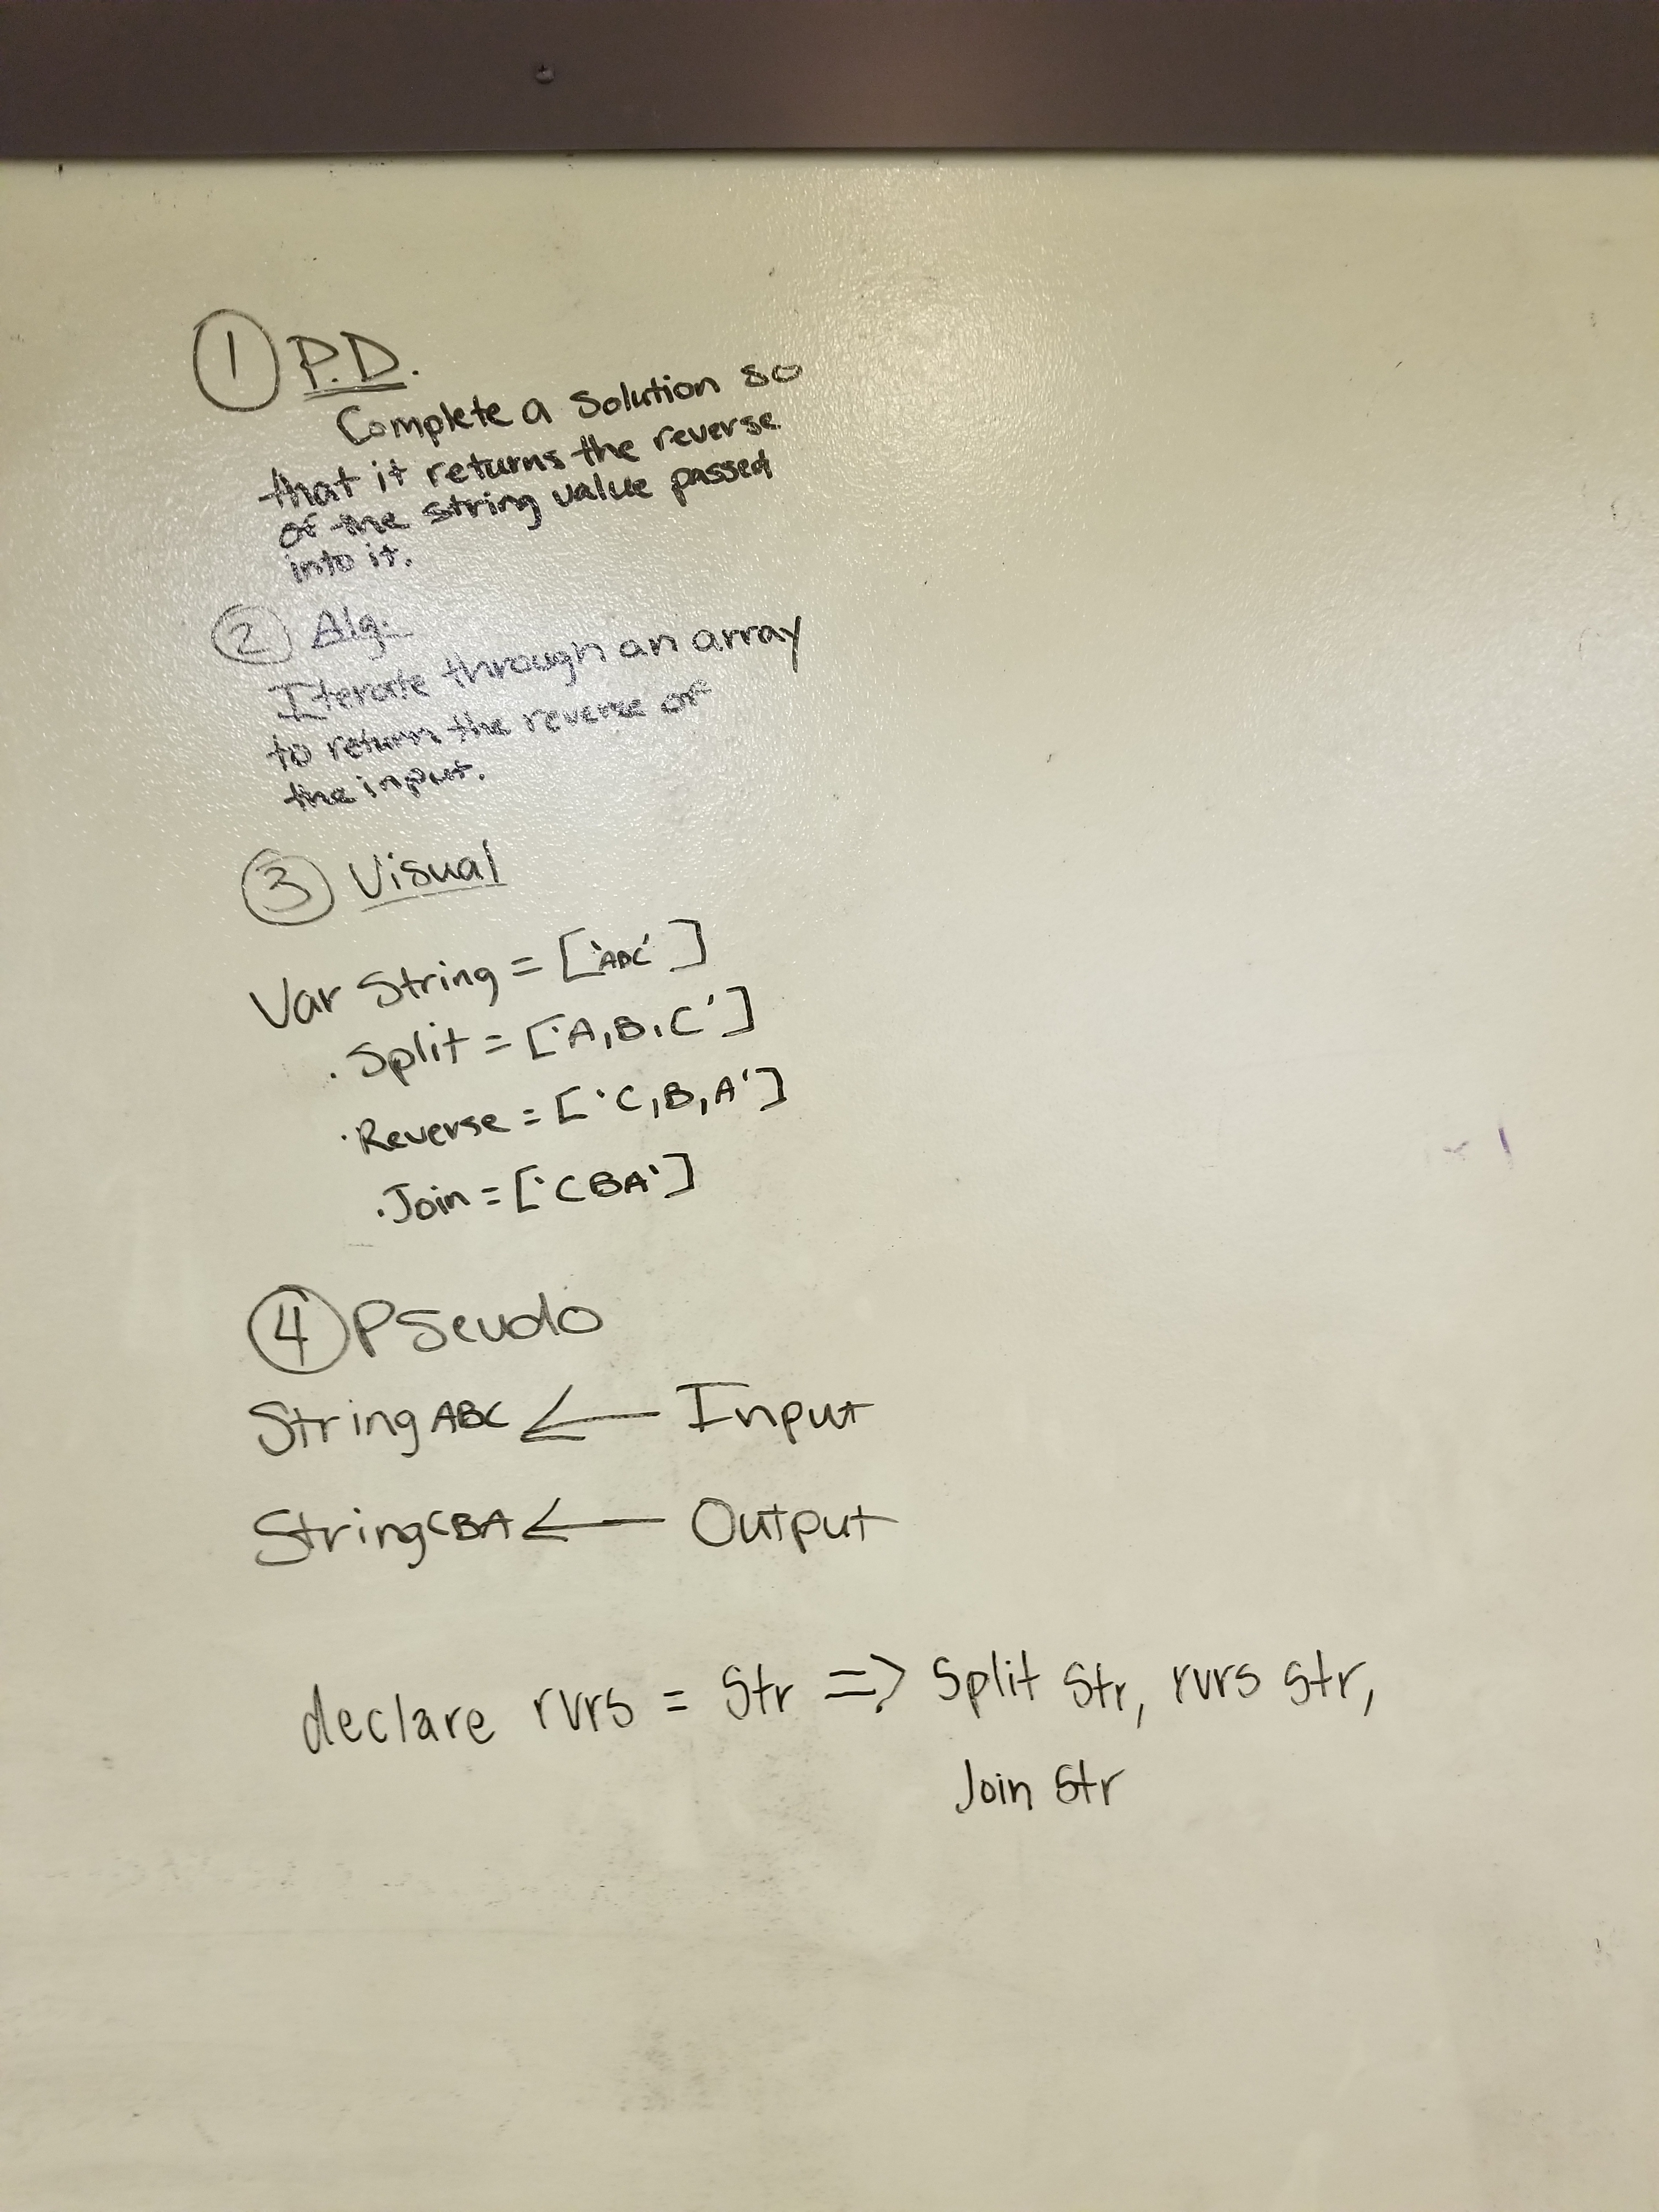 ① P.D.
Complete a Solution so
that it returns the reverse
of the string value passed
into it.
② Alg.
Iterate through an array
to return the reverse of
the input.
③ Visual
Var String = ['ABC']
.Split = ['A,B,C']
.Reverse = ['C,B,A']
.Join = ['CBA']
④ PSeudo
String ABC ← Input
String CBA ← Output
declare rvrs = Str => Split Str, rvrs Str,
Join Str